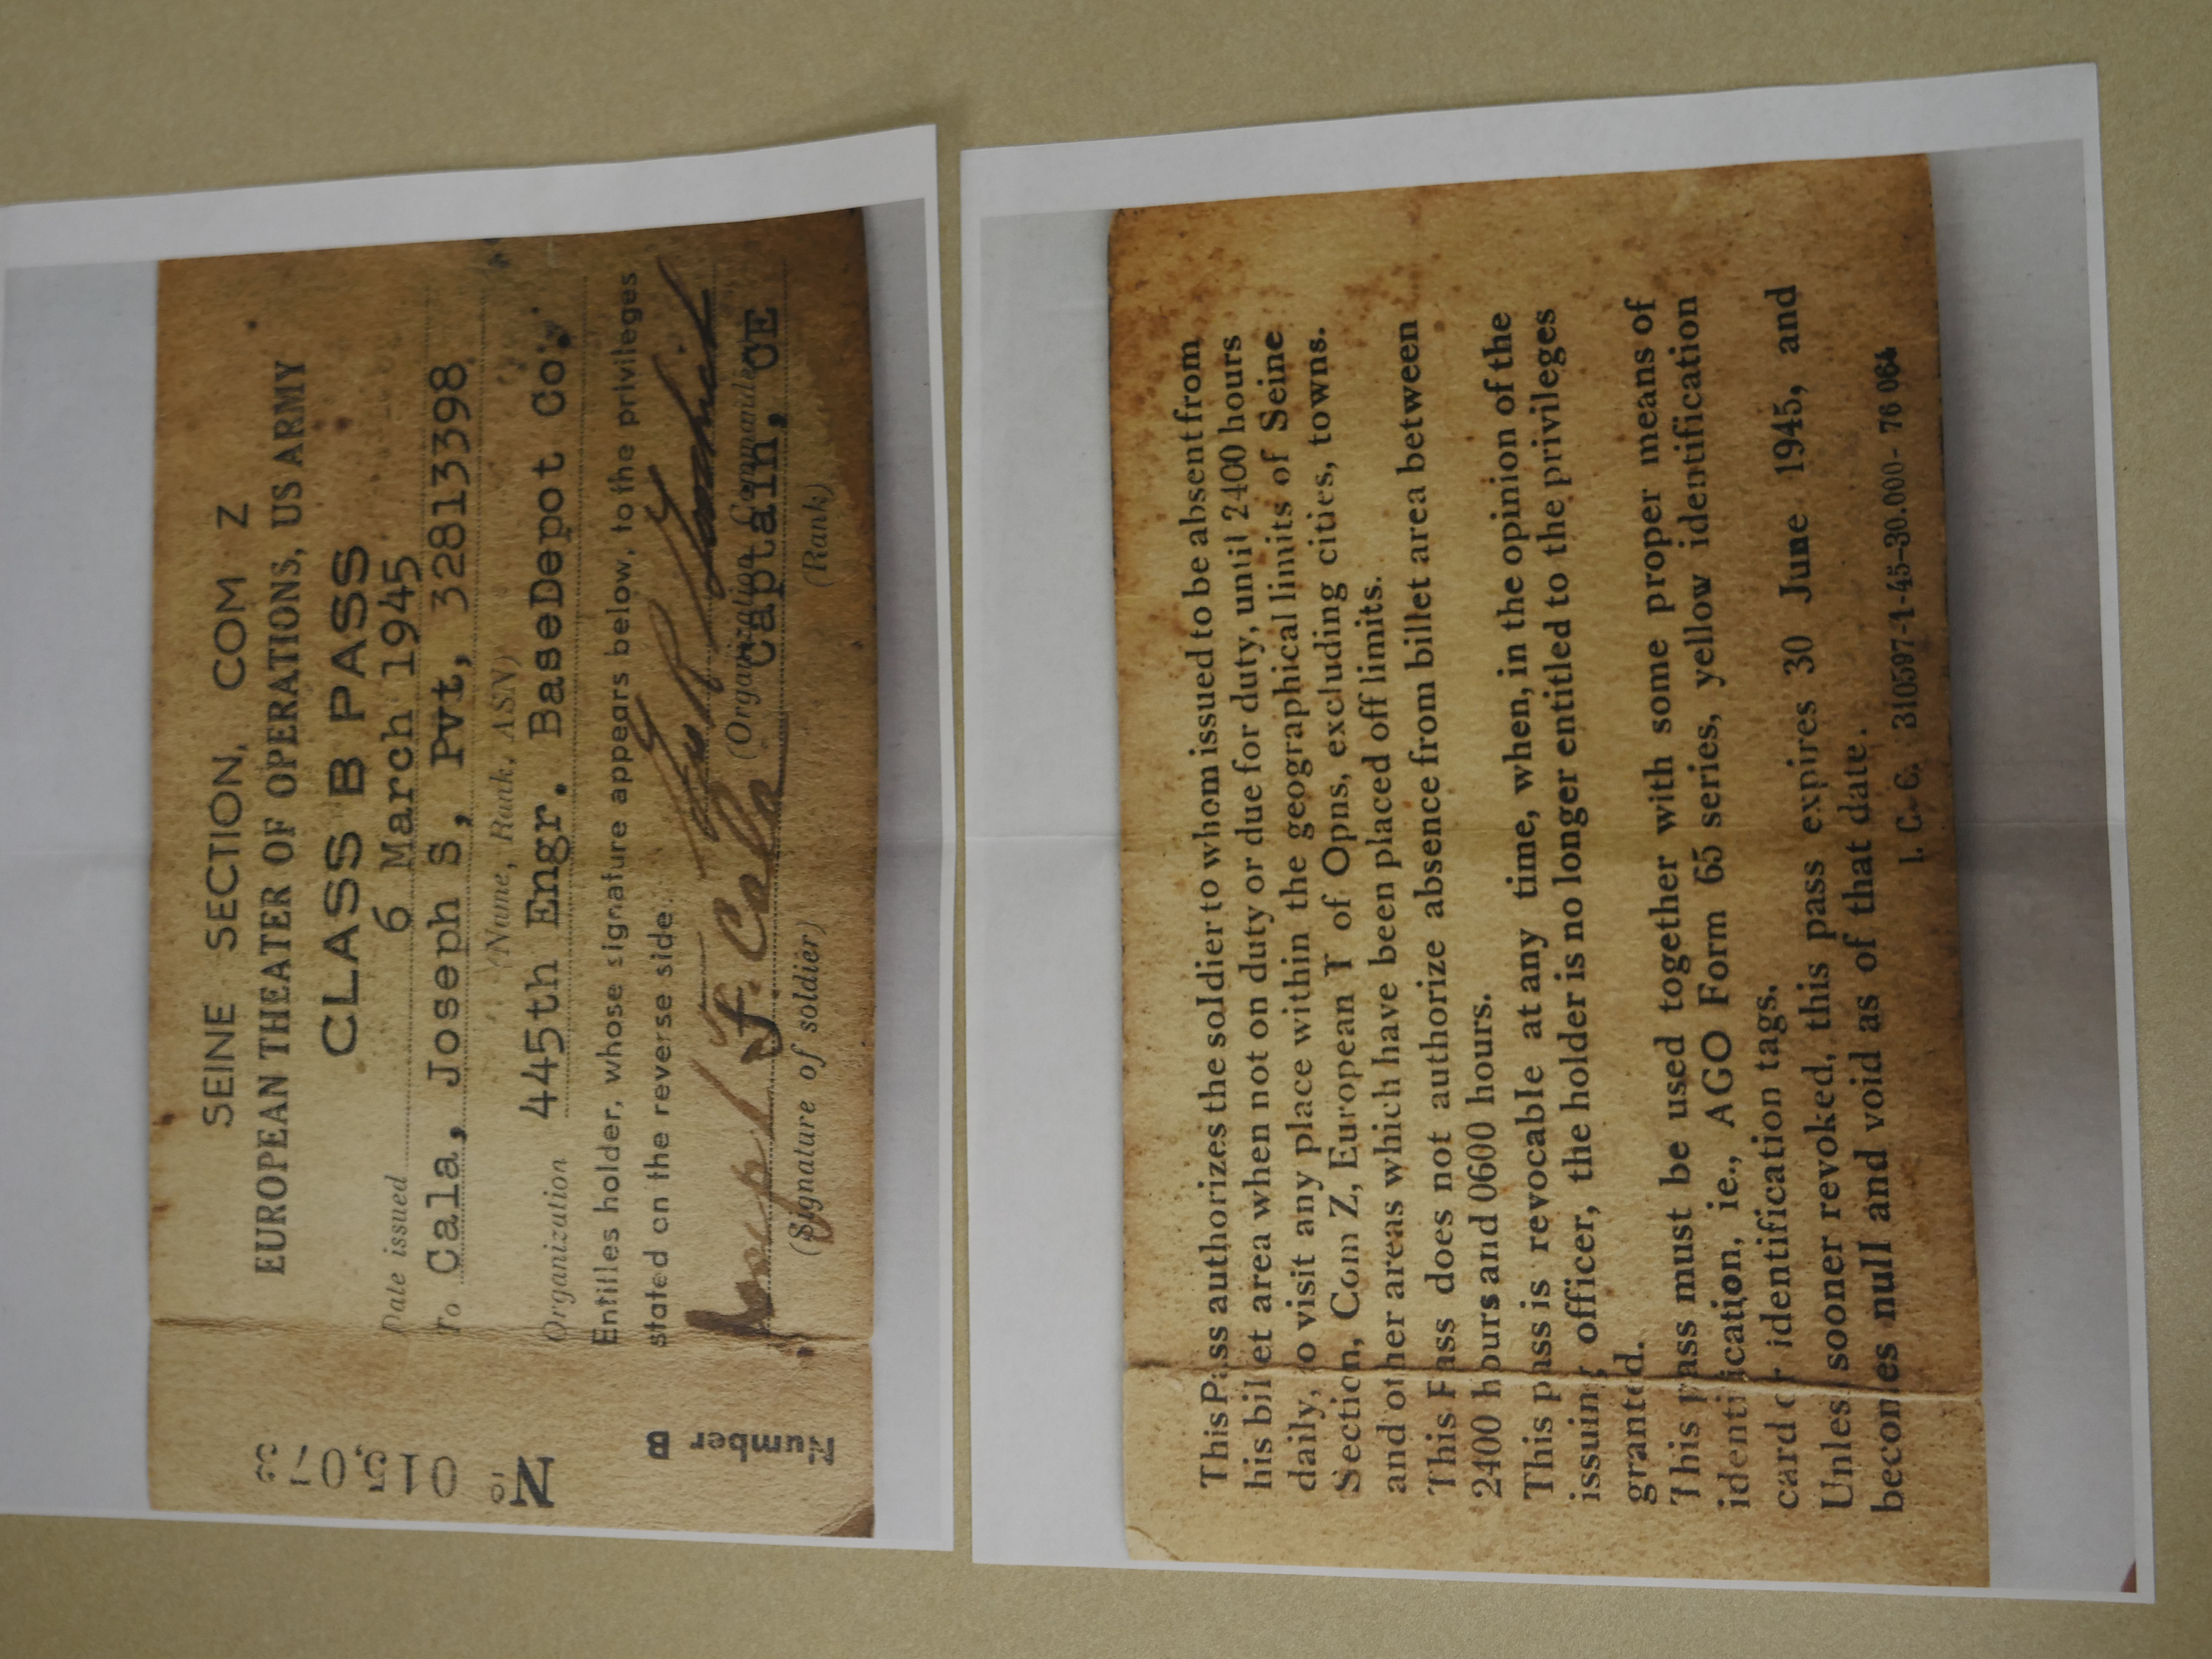 SEINE SECTION, COM Z
EUROPEAN THEATER OF OPERATIONS, US ARMY
CLASS B PASS
6 March 1945
Date issued
To Cala, Joseph S, Pvt, 32813398
(Name, Rank, ASN)
Organization 445th Engr. BaseDepot Co.
Entilles holder, whose signature appears below, to the privileges
stated on the reverse side.
Joseph S. Cala
(Signature of soldier)
(Organization Commander)
Captain, CE
(Rank)
Nº 015,073
Number B
This Pass authorizes the soldier to whom issued to be absent from
his billet area when not on duty or due for duty, until 2400 hours
daily, to visit any place within the geographical limits of Seine
Section, Com Z, European T of Opns, excluding cities, towns.
and other areas which have been placed off limits.
This Pass does not authorize absence from billet area between
2400 hours and 0600 hours.
This pass is revocable at any time, when, in the opinion of the
issuing officer, the holder is no longer entitled to the privileges
granted.
This pass must be used together with some proper means of
identification, ie., AGO Form 65 series, yellow identification
card or identification tags.
Unless sooner revoked, this pass expires 30 June 1945, and
becomes null and void as of that date.
I. C. C. 310597-1-45-30.000- 76 064